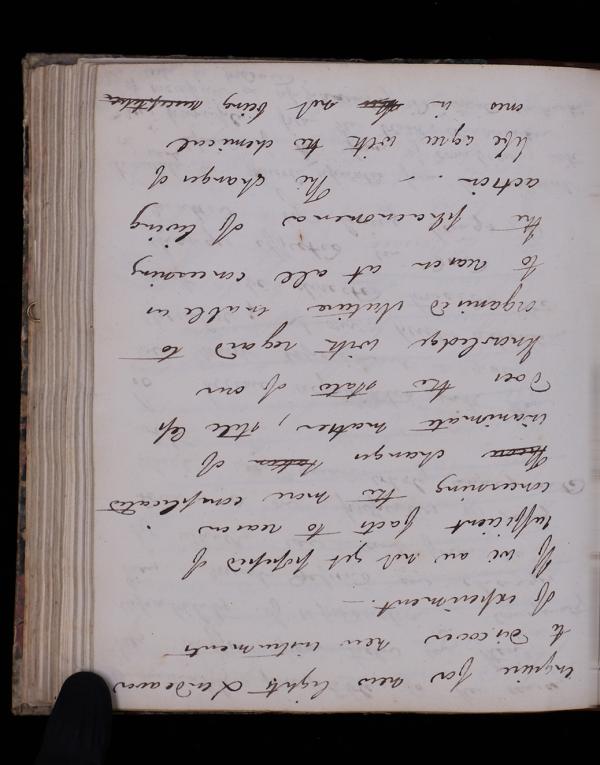 enquire for new lights & endeavor
to discover new instruments
of experiment. —
If we are not yet possessed of
sufficient facts to reason
concerning the more complicated
changes of
inanimate matter, still less
does the state of our
knowledge with regard to
organised Nature enable us
to reason at all concerning
the phaenomena of living
action. - The changes of
life agree with the chemical
ones in not being susceptible